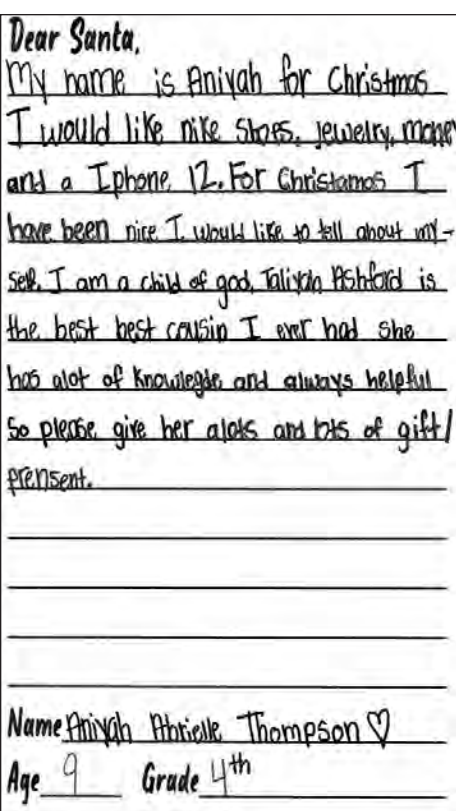 Dear Santa,
My name is Aniyah for Christmas
I would like nike shoes, jewelry, money
and a Iphone 12. For Christamos I
have been nice I would like to tell about my-
self. I am a child of god, Taliyah Ashford is
the best best cousin I ever had she
has alot of knowlegde and always helpful
so please give her alots and lots of gift/
prensent.
Name Aniyah Abrielle Thompson ♡
Age 9 Grade 4th